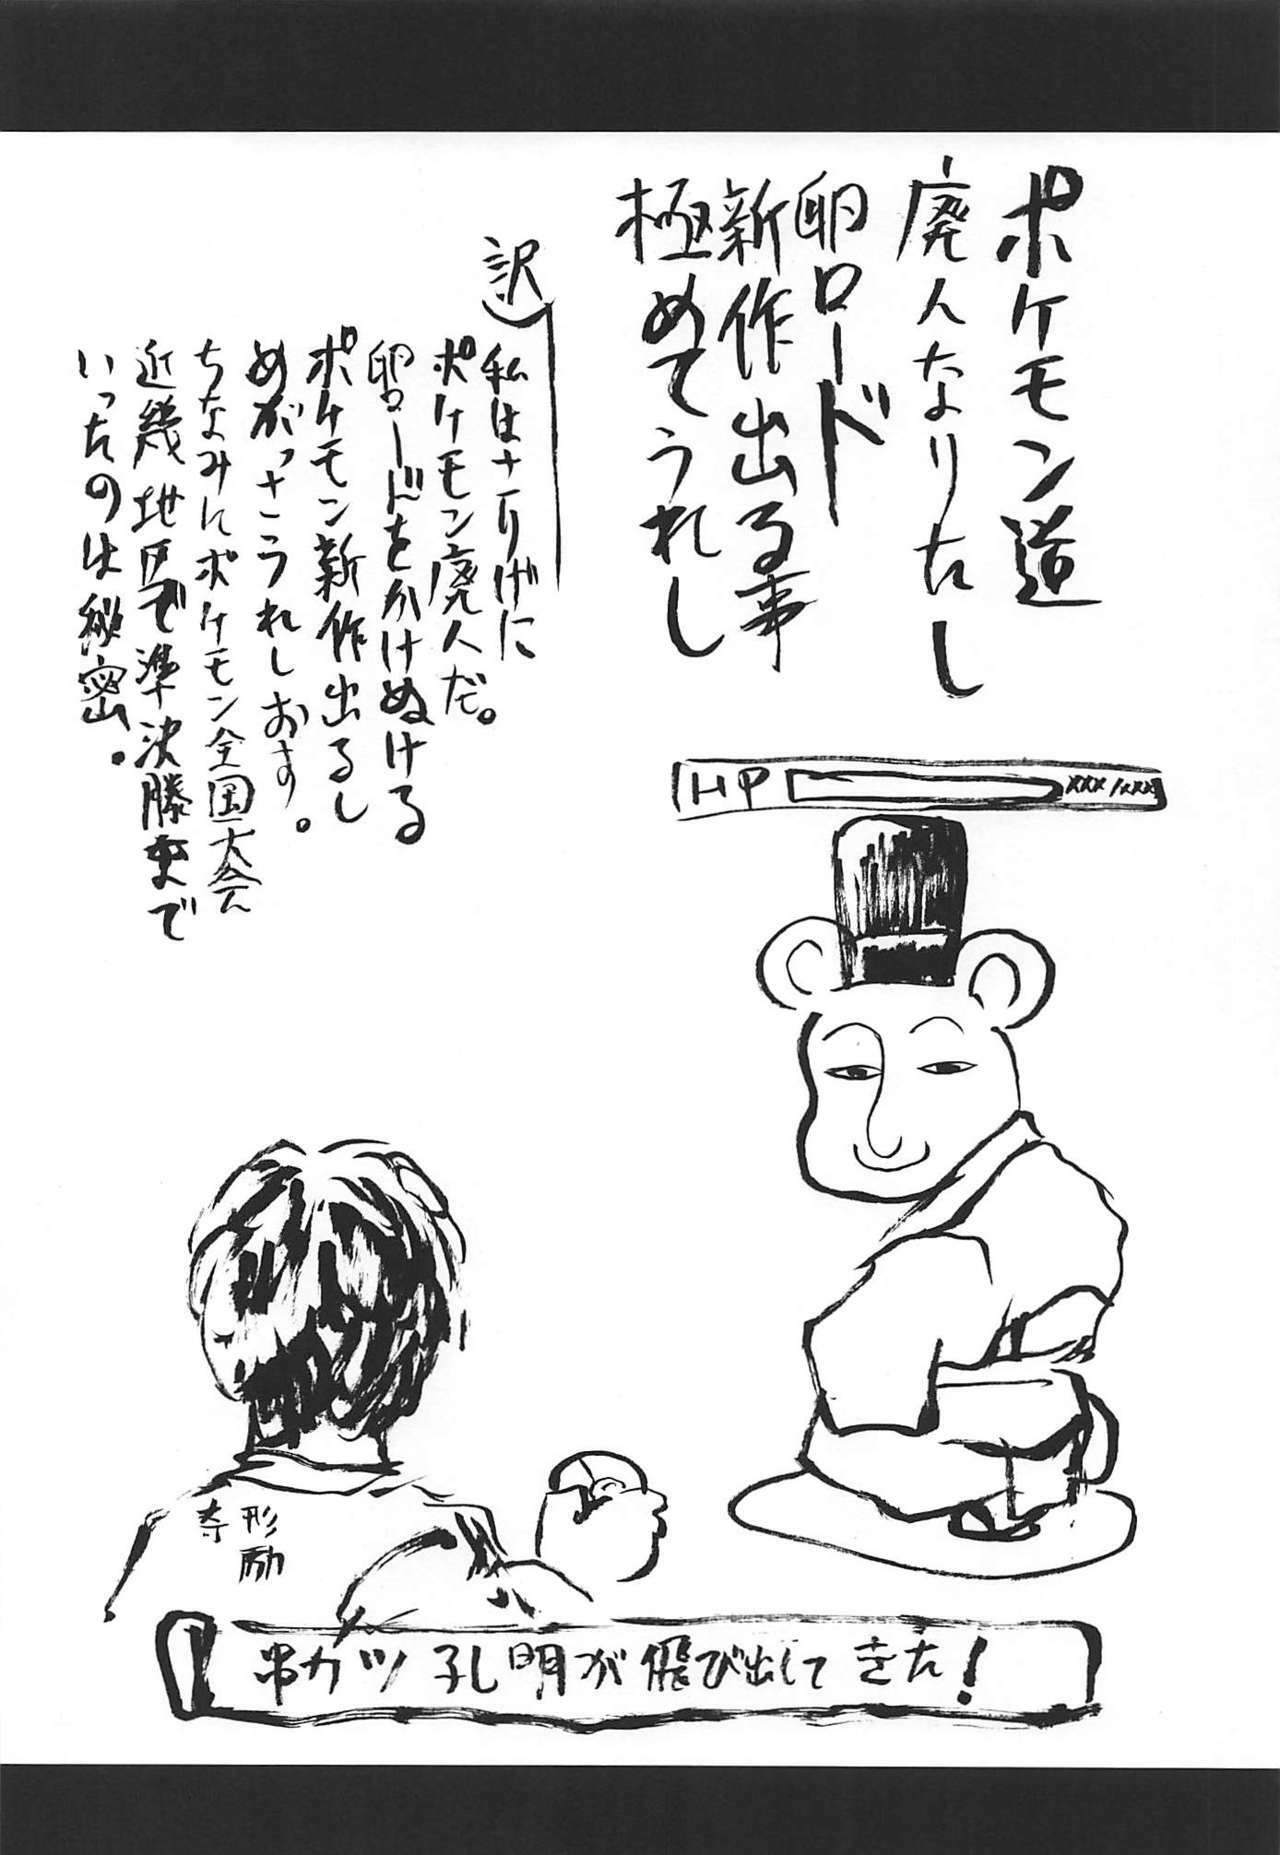 ポケモン道
廃人なりたし
卵ロード
新作出る事
極めてうれし
訳
私はさりげに
ポケモン廃人だ。
卵ロードをかけぬける
ポケモン新作出るし
めがっさうれしおす。
ちなみにポケモン全国大会
近畿地区で準決勝まで
いったのは秘密。
HP xxx/xxx
形励
串カツ孔明が飛び出してきた!